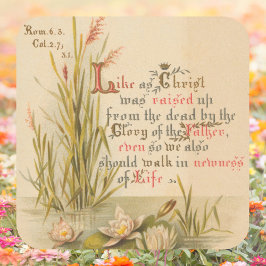 Rom. 6. 3.
Col. 2. 7;
3. 1.
Like as Christ
was raised up
from the dead by the
Glory of the Father,
even so we also
should walk in newness
of Life